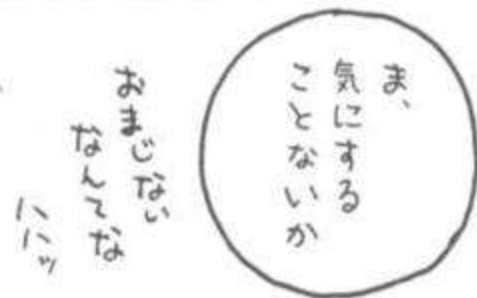 ま、
気にする
ことないか
おまじない
なんてな
ハハッ